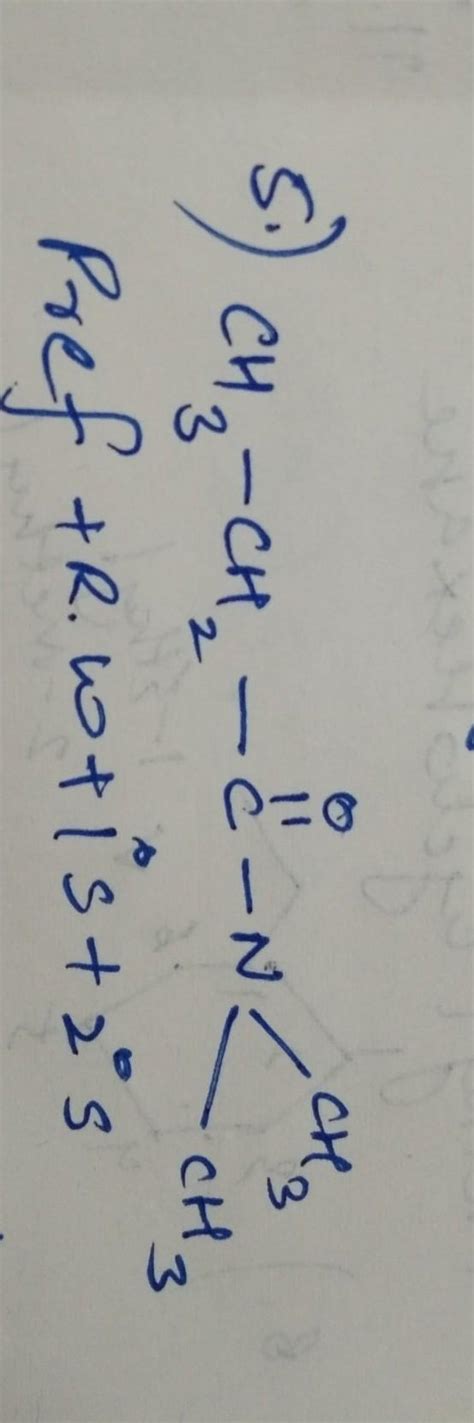 5.) CH3-CH2-C-N
O
||
CH3
CH3
Pref + R.W + 1°S + 2°S